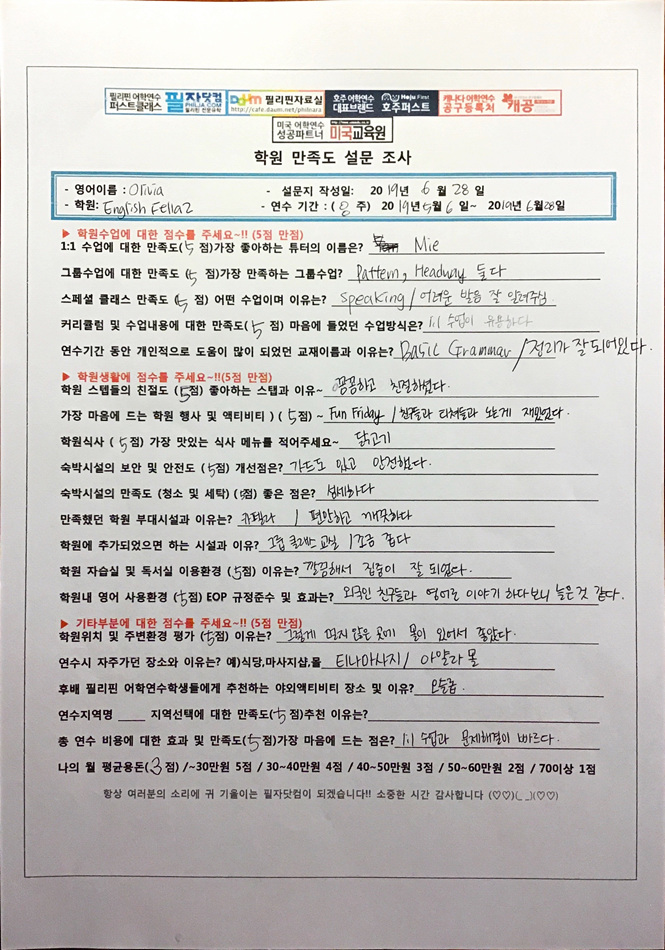 필리핀 어학연수 퍼스트클래스 필자닷컴 PHILJA.COM 필리핀 전문유학 Daum 필리핀자료실 http://cafe.daum.net/philnara 호주 어학연수 대표브랜드 Hoju First 호주퍼스트 캐나다 어학연수 공구등록처 캐공
미국 어학연수 성공파트너 미국교육원
학원 만족도 설문 조사
- 영어이름 : Olivia - 설문지 작성일: 2019년 6월 28일
- 학원: English Fella2 - 연수 기간 : (8주) 2019년 5월 6일~ 2019년 6월 28일
▶ 학원수업에 대한 점수를 주세요~!! (5점 만점)
1:1 수업에 대한 만족도(5점)가장 좋아하는 튜터의 이름은? Mie
그룹수업에 대한 만족도 (5점)가장 만족하는 그룹수업? Pattern, Headway 둘다
스페셜 클래스 만족도 (5점) 어떤 수업이며 이유는? speaking / 어려운 발음 잘 알려주심
커리큘럼 및 수업내용에 대한 만족도(5점) 마음에 들었던 수업방식은? 1:1 수업이 유용하다
연수기간 동안 개인적으로 도움이 많이 되었던 교재이름과 이유는? Basic Grammar / 정리가 잘 되어있다.
▶ 학원생활에 점수를 주세요~!!(5점 만점)
학원 스텝들의 친절도 (5점) 좋아하는 스탭과 이유~ 꼼꼼하고 친절하셨다.
가장 마음에 드는 학원 행사 및 액티비티 ) (5점) ~ Fun Friday / 친구들과 티쳐들과 노는게 재밌었다.
학원식사 (5점) 가장 맛있는 식사 메뉴를 적어주세요~ 닭고기
숙박시설의 보안 및 안전도 (5점) 개선점은? 가드도 있고 안전했다.
숙박시설의 만족도 (청소 및 세탁) (5점) 좋은 점은? 섬세하다
만족했던 학원 부대시설과 이유는? 카페라 / 편안하고 깨끗하다
학원에 추가되었으면 하는 시설과 이유? 그룹 클래스 교실 / 조금 좁다
학원 자습실 및 독서실 이용환경 (5점) 이유는? 깔끔해서 집중이 잘 되었다.
학원내 영어 사용환경 (5점) EOP 규정준수 및 효과는? 외국인 친구들과 영어로 이야기 하다보니 늘은것 같다.
▶ 기타부분에 대한 점수를 주세요~!! (5점 만점)
학원위치 및 주변환경 평가 (5점) 이유는? 그렇게 멀지 않은 곳에 몰이 있어서 좋았다.
연수시 자주가던 장소와 이유는? 예)식당,마사지샵,몰 티나마사지 / 아얄라 몰
후배 필리핀 어학연수학생들에게 추천하는 야외액티비티 장소 및 이유? 오슬롭.
연수지역명 _____ 지역선택에 대한 만족도(5점)추천 이유는?
총 연수 비용에 대한 효과 및 만족도(5점)가장 마음에 드는 점은? 1:1 수업과 문제해결이 빠르다.
나의 월 평균용돈(3점) /~30만원 5점 / 30~40만원 4점 / 40~50만원 3점 / 50~60만원 2점 / 70이상 1점
항상 여러분의 소리에 귀 기울이는 필자닷컴이 되겠습니다!! 소중한 시간 감사합니다 (♡♡)(_ _)(♡♡)